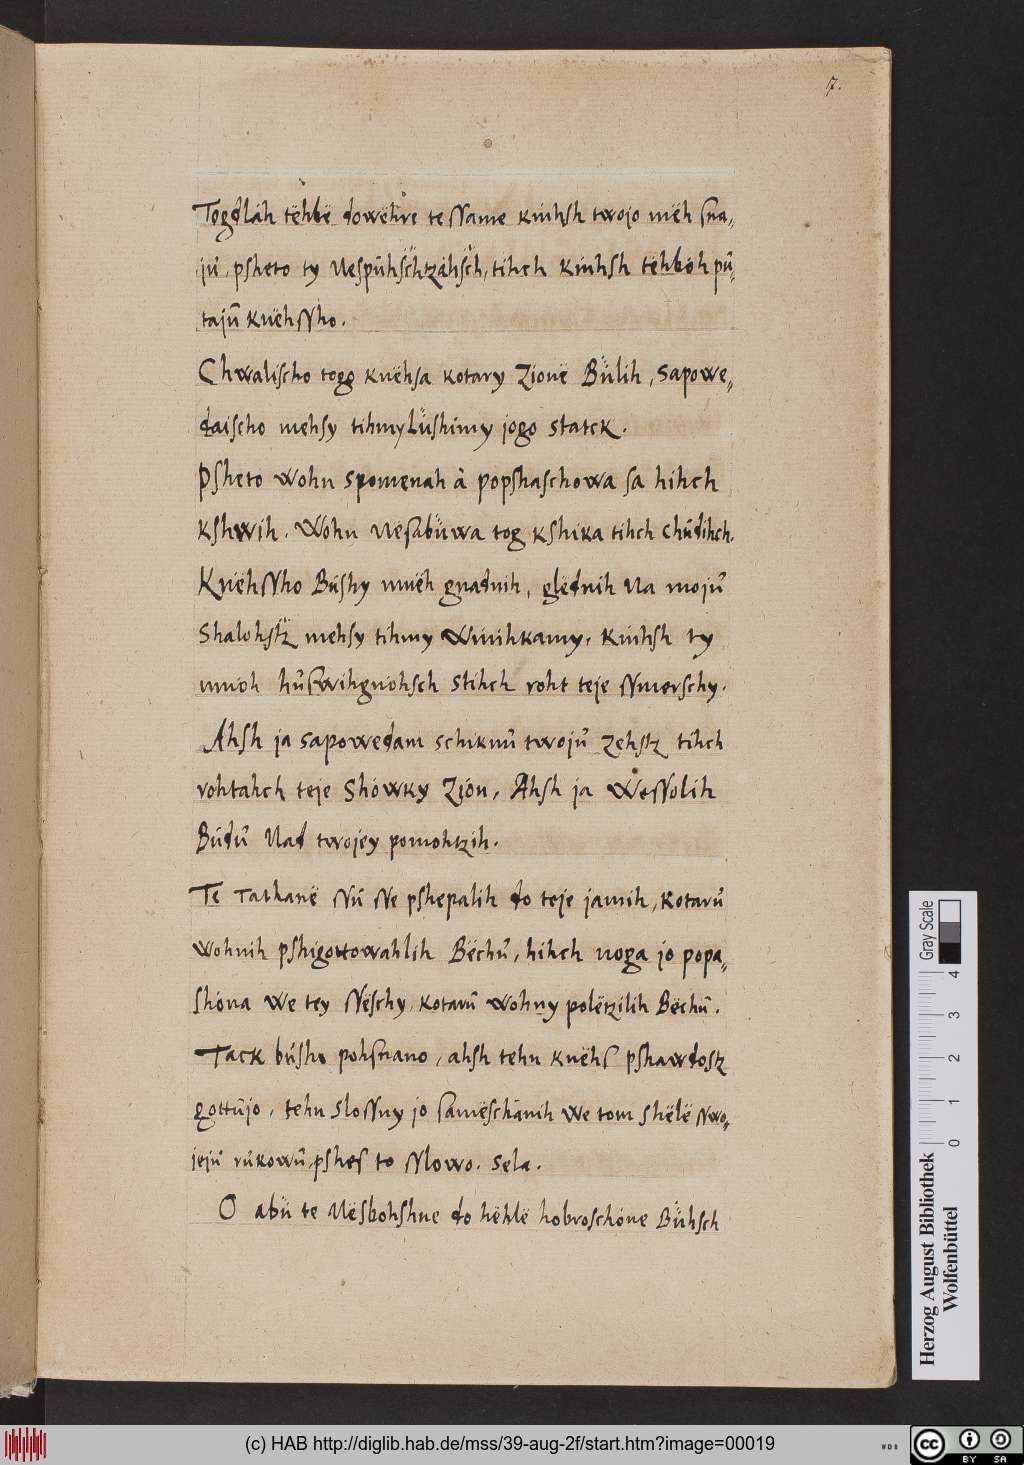 7.
Togdlah tëhbë dowëhre te ssame knihsh twojo mëh sna,,
jů, psheto ty Nespühschtzähsch, tihch knihsh tëhboh pů,,
tajů Knëhssho.
Chwalischo togg knëhsa kotary Zionë Bülih, Sapowe,,
daischo mehsy tihmy Lüshimy jogo statck.
Psheto wohn spomenah à popshaschowa sa hihch
kshwih. Wohn Nesabüwa tog kshika tihch Chůdihch.
Knëhssho Búshy mnëh gnadnih, glëdnih Na mojů
Shalohstz mehsy tihmy Winihkamy, knihsh ty
mnoh hůswihgnohsch stihch roht teje ssmerschy.
Ahsh ja sapowedam schiknů twojů Zehstz tihch
rohtahch teje Shówky Zión, Ahsh ja Wessolih
Búdů Nad twojey pomohtzih.
Te Tathanë ssú sse pshepalih do teje jamih, kotarů
wohnih pshigottowahlih Bëchů, hihch noga jo popa,,
shóna we tey ssëschy, kotarů wohny polëtzilih Bëchů.
Tack búsho pohsnano, ahsh tehn knëhs pshawdostz
gottůjo, tehn Slossny jo samëschánih we tom Shëlë sswo,,
jejů růkowů, pshes to sslowo. Sela.
O abü te Nësbohshne do hëhlë hobroschóne Bühsch
Gray Scale
0 1 2 3 4
Herzog August Bibliothek
Wolfenbüttel
(c) HAB http://diglib.hab.de/mss/39-aug-2f/start.htm?image=00019
WDB
cc BY SA